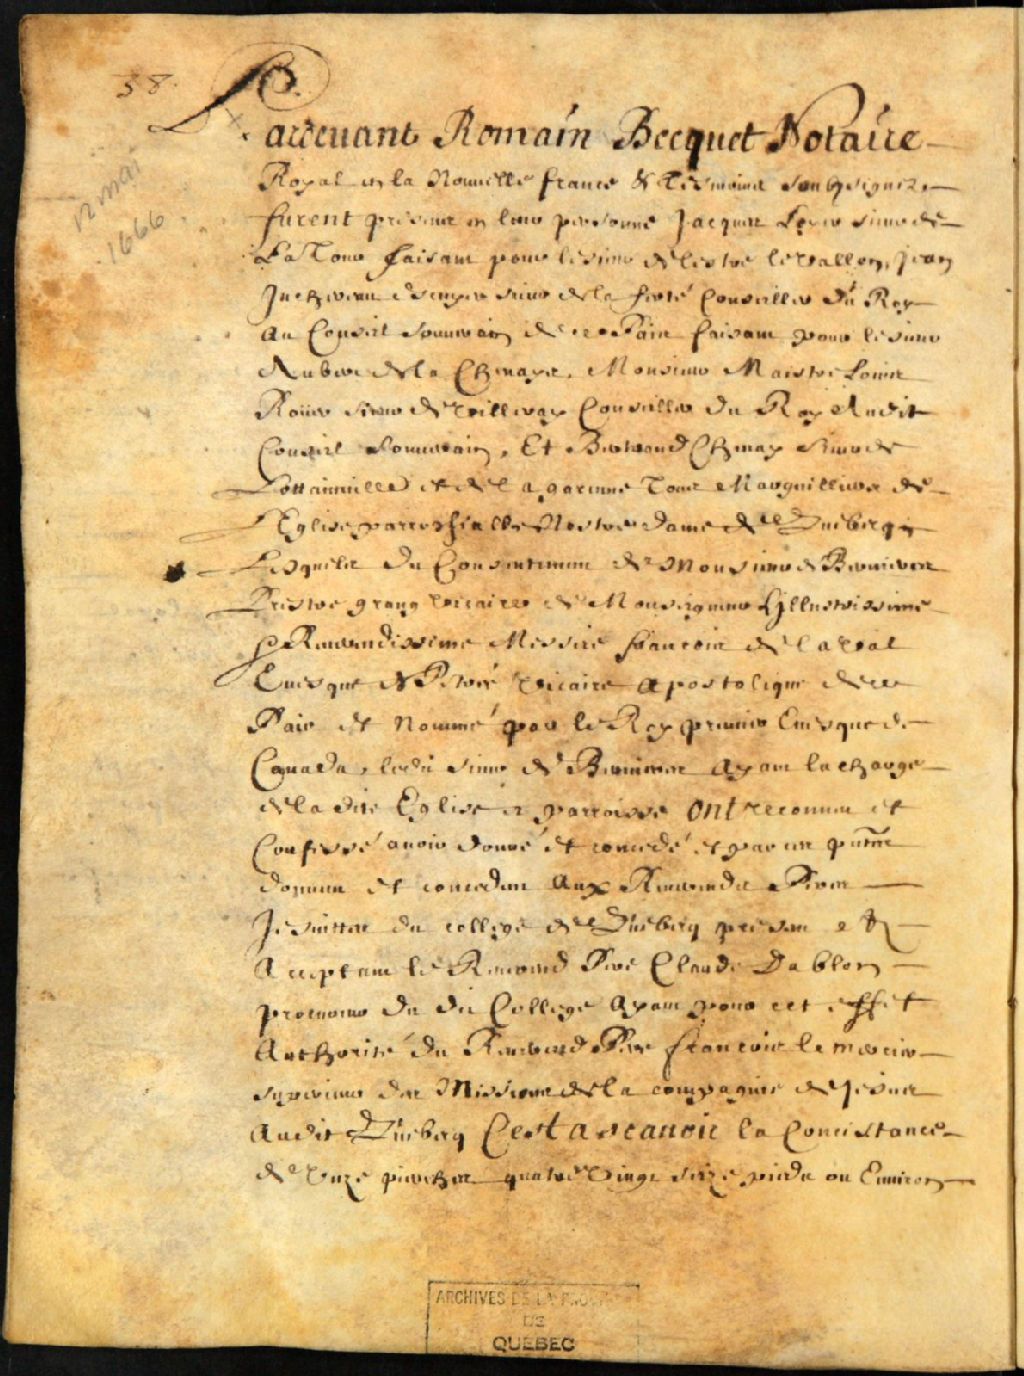 38.
12 mai
1666
Pardevant Romain Becquet Notaire
Royal en la Nouvelle france & Tesmoins soubzsignez
furent presens en leurs personnes Jacques Loyer sieur de
La Tour faisant pour le sieur de Lestre le vallon, Jean
Juchereau escuyer sieur de la ferté Conseiller du Roy
au Conseil souverain de ce Païs faisant pour le sieur
Aubert de la Chenaye, Monsieur Maistre Louis
Roüer sieur de villeray Conseiller du Roy Audit
Conseil souverain, Et Bertrand Chenay sieur de
Lottainville et de la garenne Tous Marguilliers de
L'Eglise parrochialle Nostre dame de Quebecq
Lesquels du Consentement de Monsieur de Bernieres
Prestre grang vicaire de Monseigneur Lillustrissime
& Reverendissime Messire francois de laval
Evesque de Petrée vicaire apostolique de ce
Païs et Nommé par le Roy premier Evesque de
Canada, ledit sieur de Bernieres ayant la charge
de la dite Eglise et parroisse ont reconnu et
Confessé avoir donné et concedé et par ces pntes
donnent et concedent aux Reverends Peres
Jesuittes du college de Quebecq present &
acceptant le Reverend Pere Claude Dablon
procureur du dit College ayant pour cet effet
Authorité du Reverend Pere francois le mercier
superieur des Missions de la compagnie de Jesus
audit Quebecq Cest a scavoir la Concistance
de unze perches quatre vingt seize pieds ou Environ
ARCHIVES DE LA PROVINCE
DE
QUEBEC